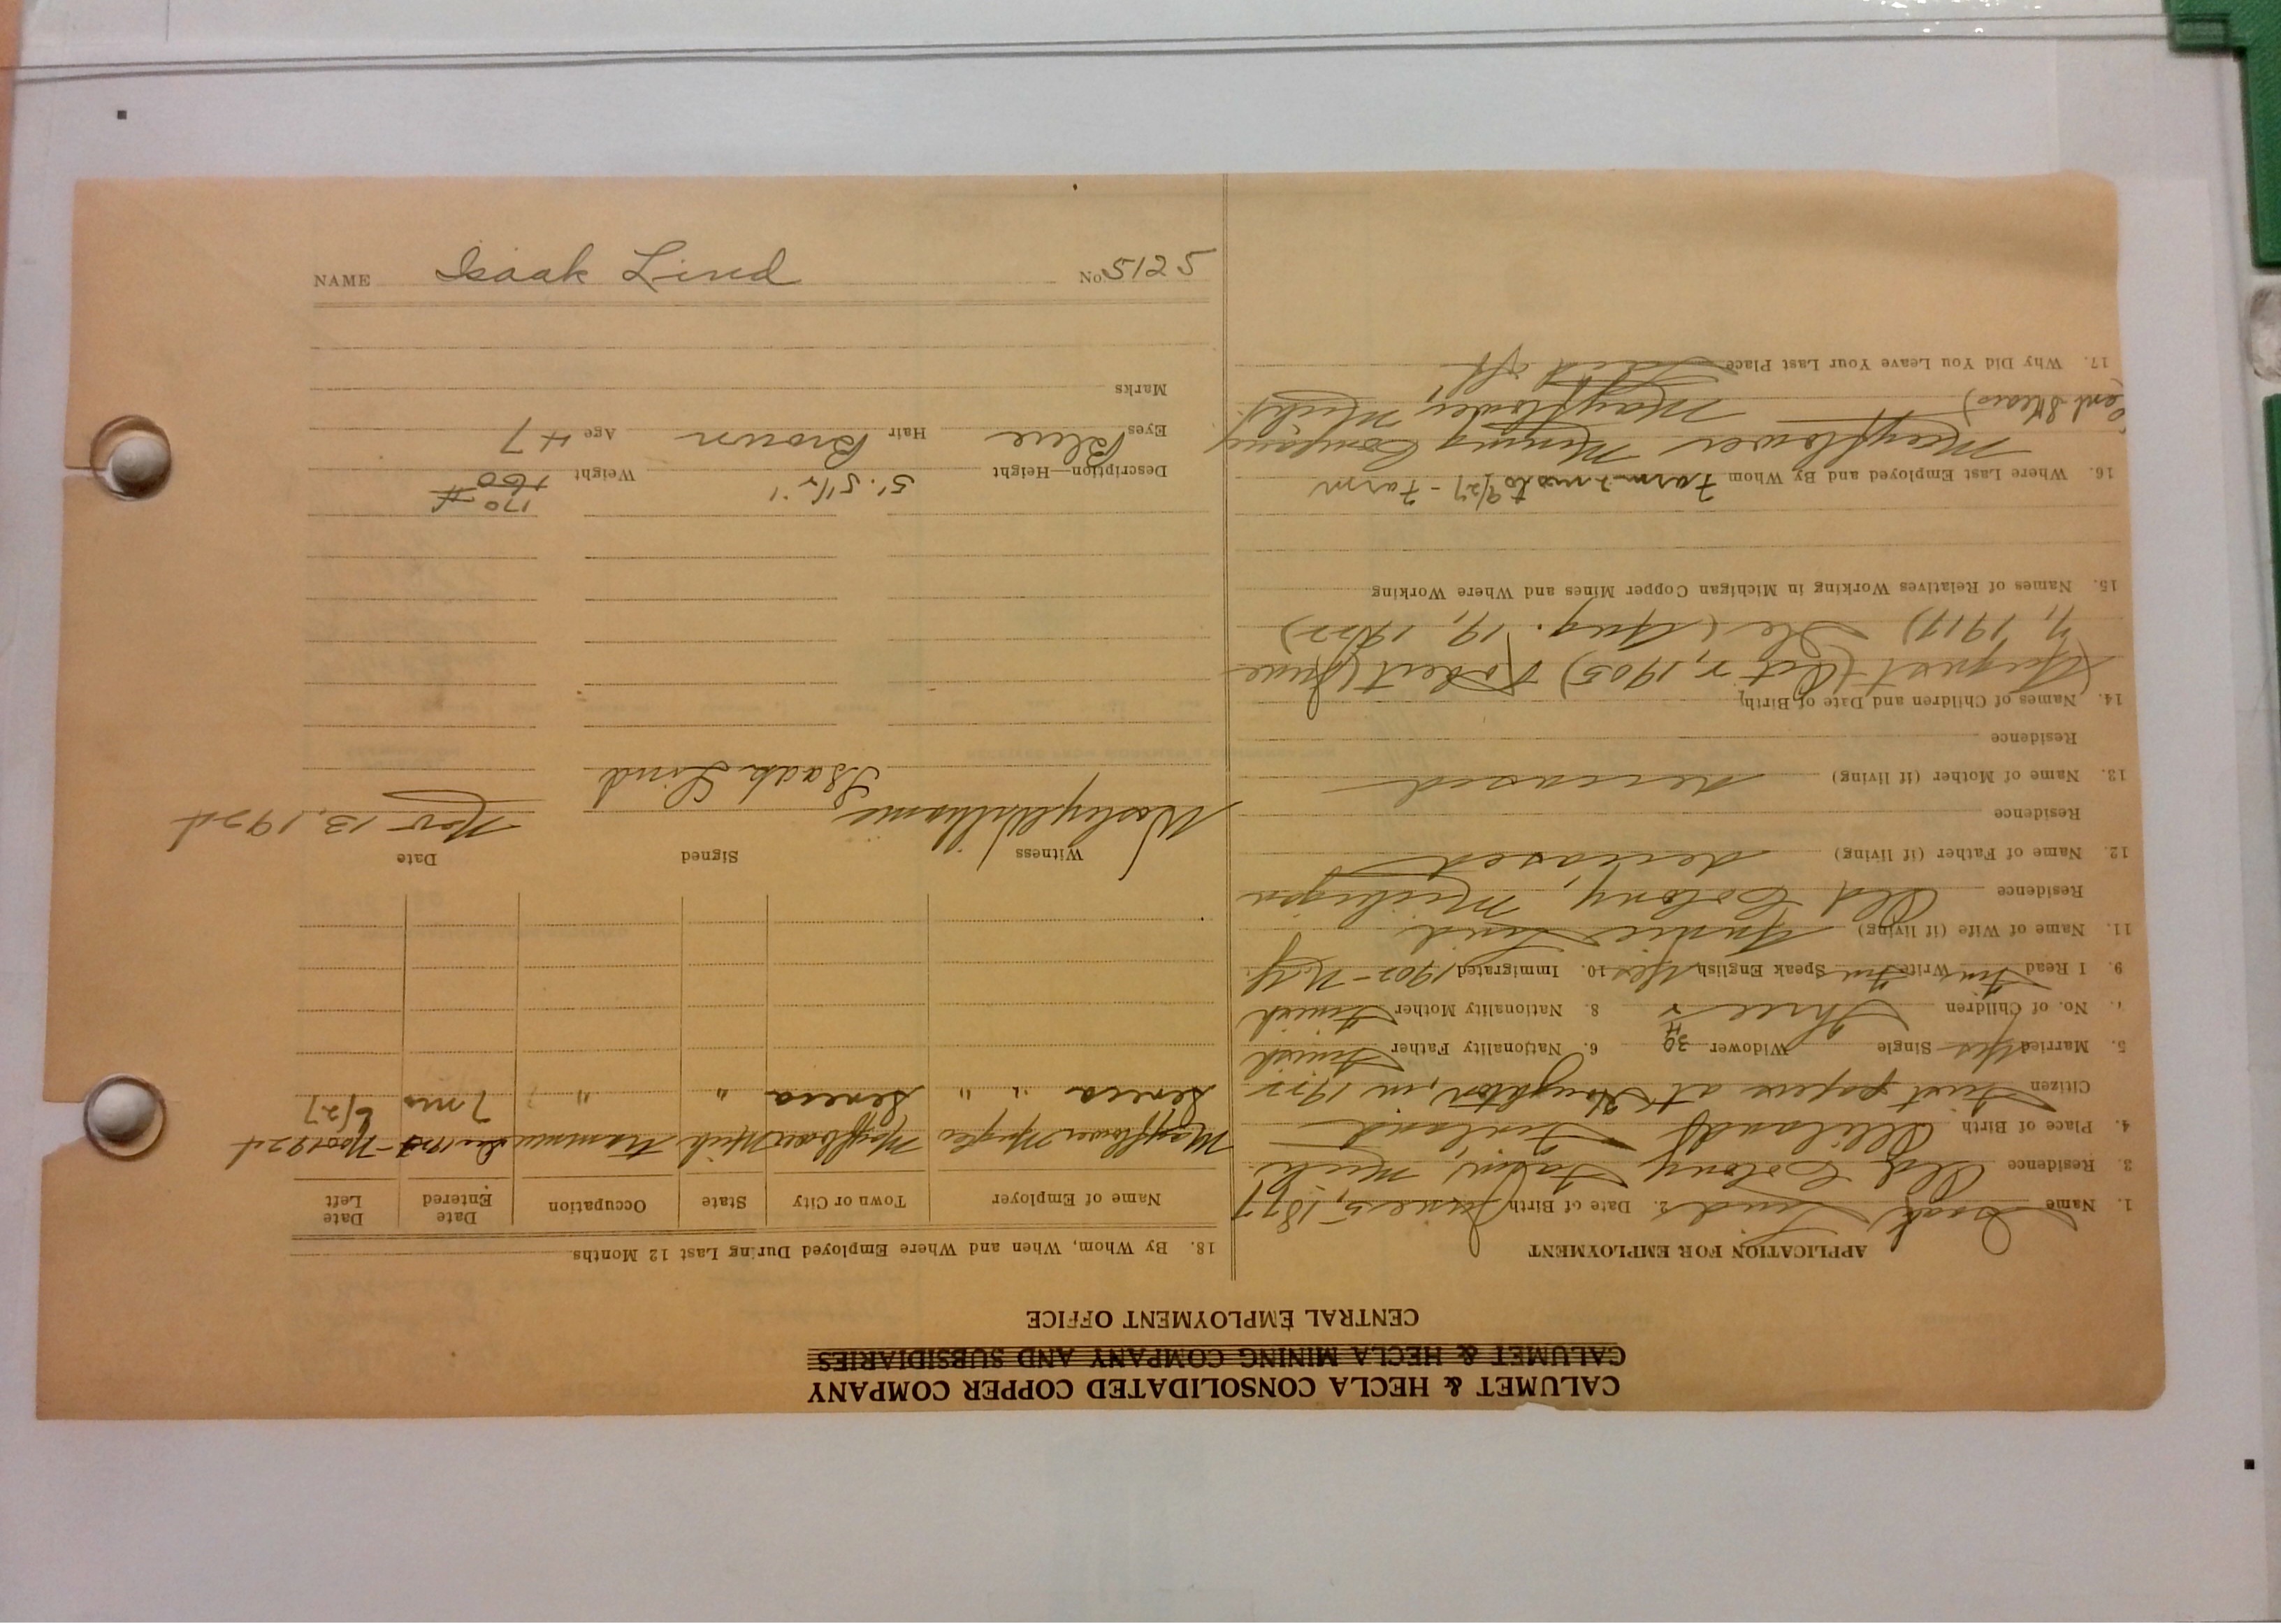 CALUMET & HECLA CONSOLIDATED COPPER COMPANY
CALUMET & HECLA MINING COMPANY AND SUBSIDIARIES
CENTRAL EMPLOYMENT OFFICE
APPLICATION FOR EMPLOYMENT
1. Name Isaak Lind 2. Date of Birth June 5, 1877
3. Residence Old Colony Salin, Mich
4. Place of Birth Finland
Citizen First papers at Houghton, in 1922
5. Married Yes Single Widower 39 6. Nationality Father Finnish
7. No. of Children Three 8. Nationality Mother Finnish
9. I Read Fin Write Fin Speak English Yes 10. Immigrated 1902 - N.Y.
11. Name of Wife (if living) Lind
Residence Old Colony, Michigan
12. Name of Father (if living) deceased
Residence
13. Name of Mother (if living) deceased
Residence
14. Names of Children and Date of Birth
August (Oct 2, 1905) Robert (June
7, 1917) (Aug. 19, 1922)
15. Names of Relatives Working in Michigan Copper Mines and Where Working
16. Where Last Employed and By Whom Farm 2 mos to 9/27 - Farm
Mayflower Mining Company
Mayflower, Mich.
17. Why Did You Leave Your Last Place Laid off
18. By Whom, When and Where Employed During Last 12 Months
Name of Employer Town or City State Occupation Date Entered Date Left
Mayflower Mayflower Mich Trammer Nov 1924
Seneca " " Seneca " " 7 mos 6/27
Witness Signed Date
Wesley Williams Isaak Lind Nov 13, 1924
170 #
Description—Height 5' 5 1/2" Weight 160
Eyes Blue Hair Brown Age 47
Marks
NAME Isaak Lind No. 5125